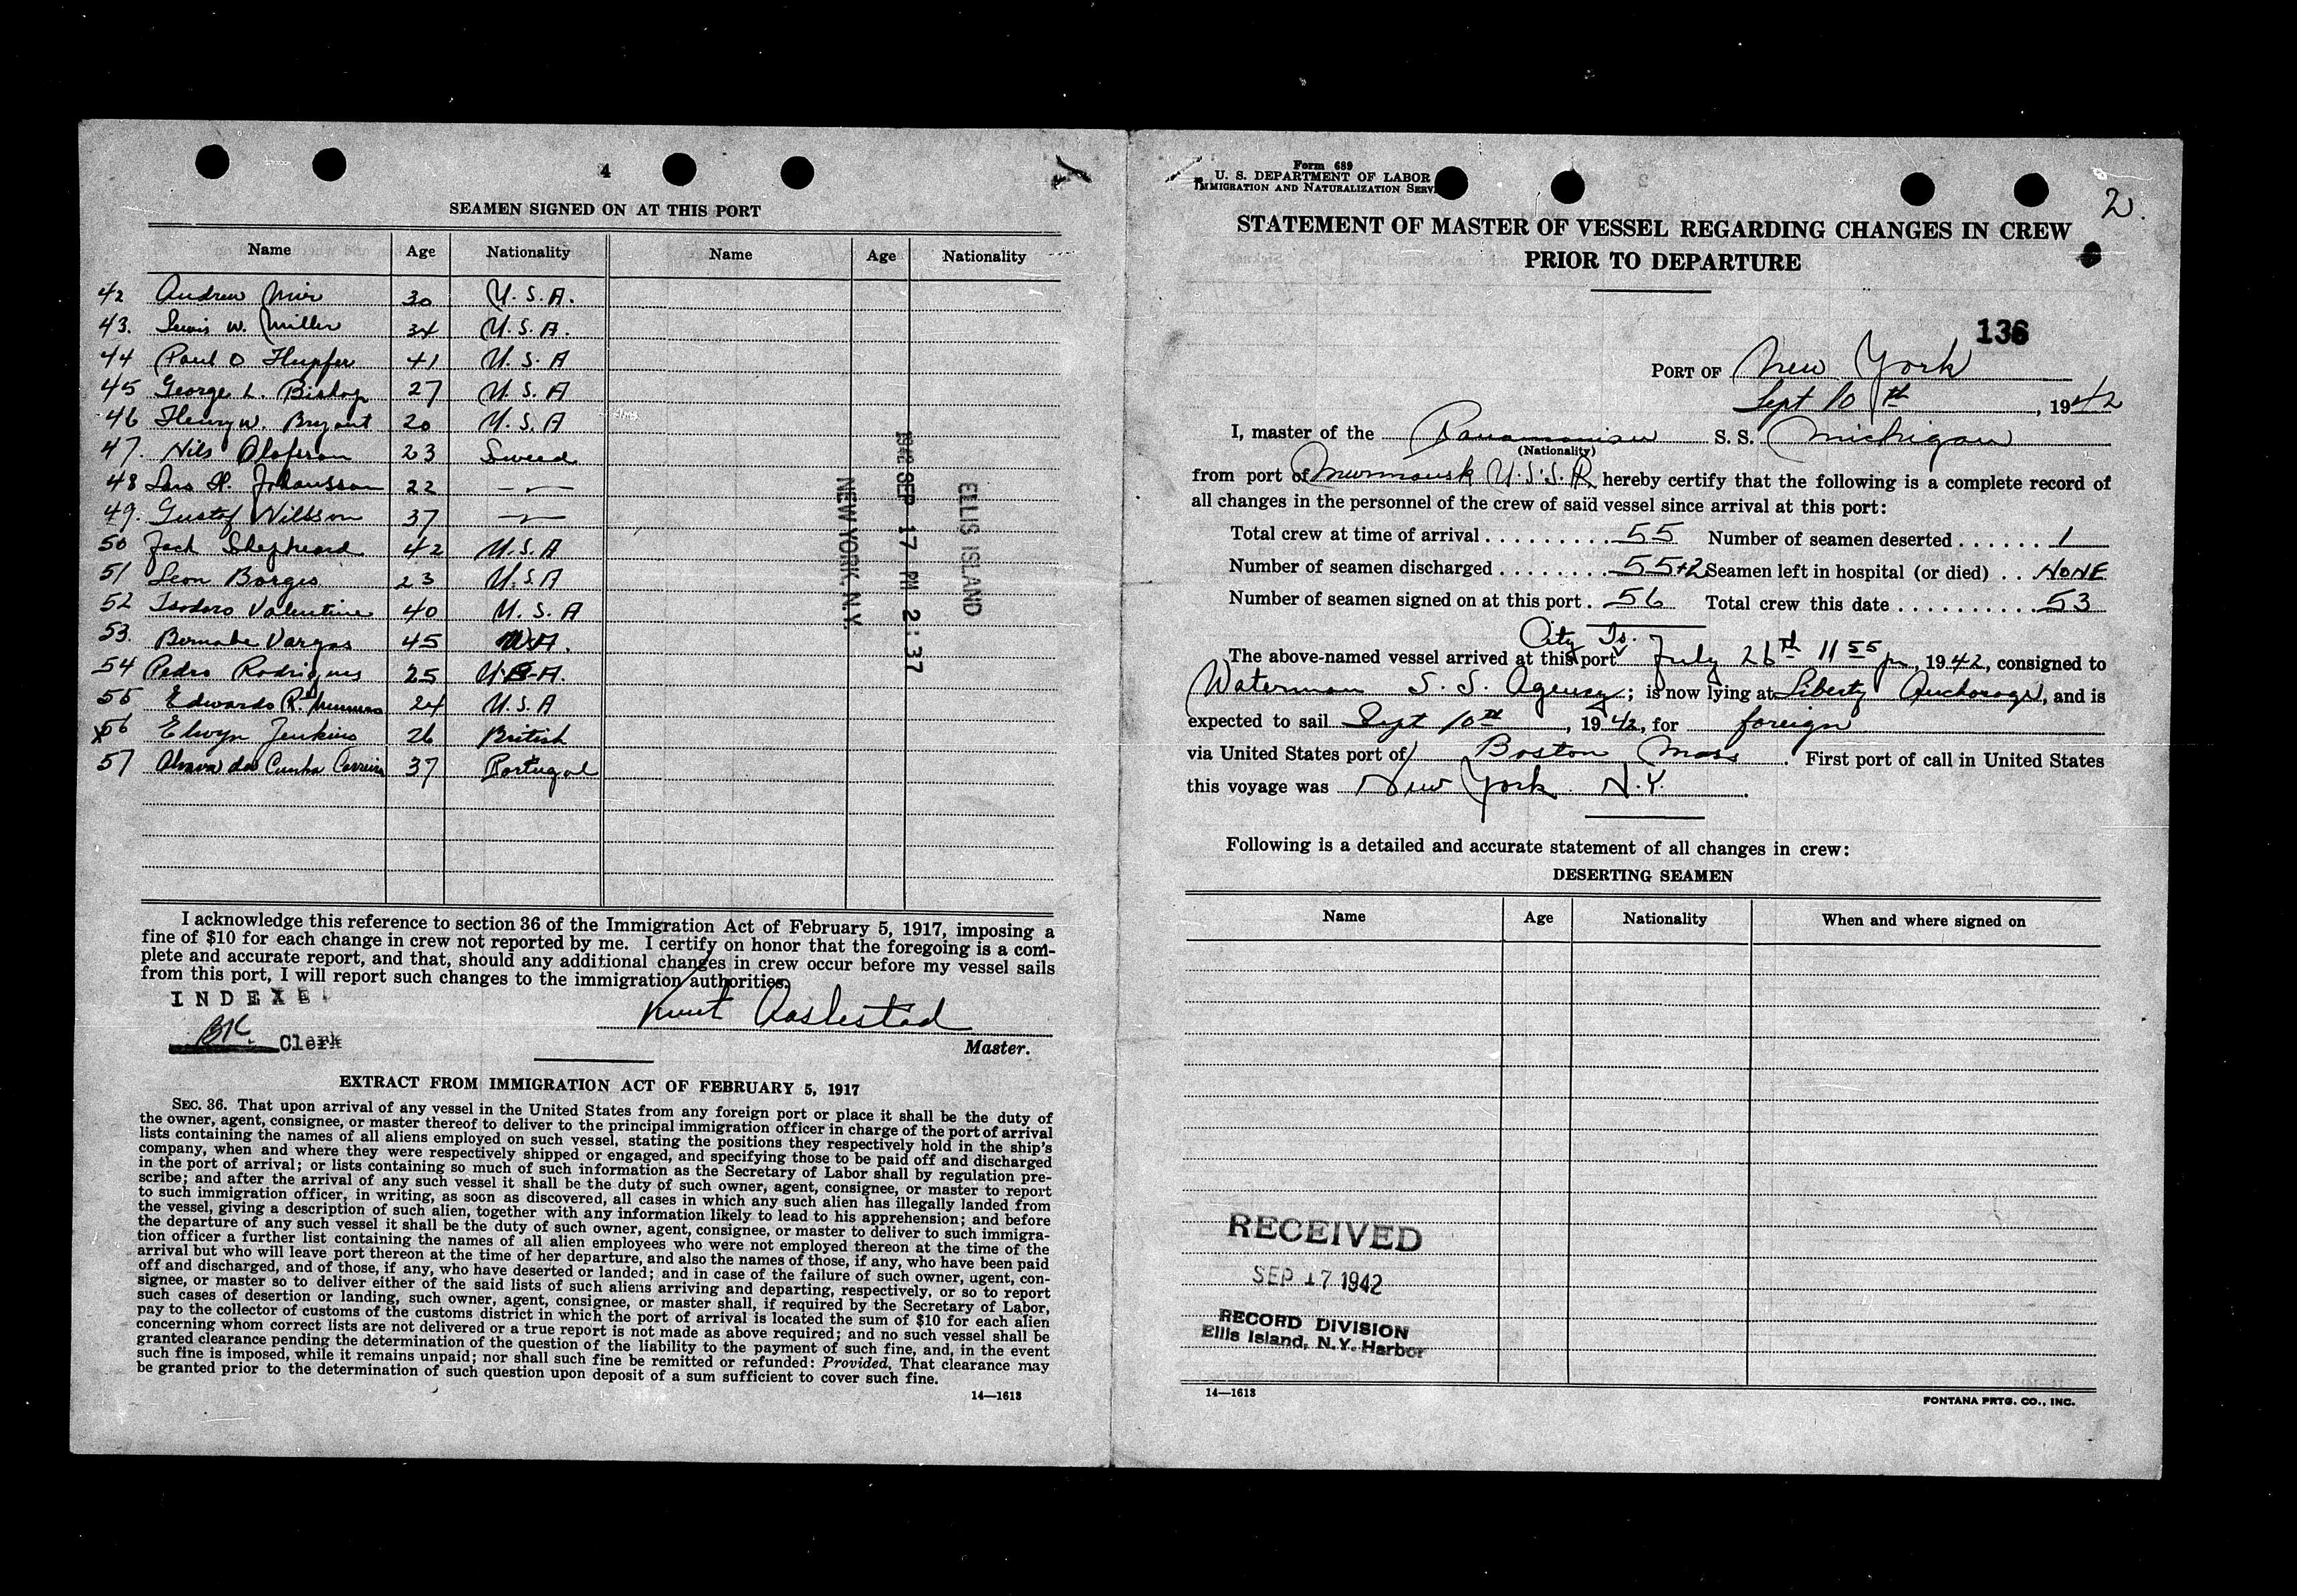 4
SEAMEN SIGNED ON AT THIS PORT
Name Age Nationality Name Age Nationality
42 Andrew Mir 30 U. S. A.
43. Lewis W. Miller 34 U. S. A.
44 Paul O Hupfer 41 U. S. A
45 George L. Bishop 27 U. S. A
46 Henry W. Bryant 20 U. S. A
47. Nils Olofsson 23 Sweed
48 Lars H. Johansson 22 —〃—
49. Gustaf Nilsson 37 —〃—
50 Jack Shepheard 42 U. S. A
51 Leon Borges 23 U. S. A
52 Isodoro Valentine 40 U. S. A
53. Bernabe Vargas 45
54 Pedro Rodrigues 25 U.S.A.
55 Edwardo R. 24 U. S. A
56 Elwyn Jenkins 26 British
57 da Cunha Correira 37 Portugal
ELLIS ISLAND
1942 SEP 17 PM 2:37
NEW YORK N.Y.
I acknowledge this reference to section 36 of the Immigration Act of February 5, 1917, imposing a
fine of $10 for each change in crew not reported by me. I certify on honor that the foregoing is a com-
plete and accurate report, and that, should any additional changes in crew occur before my vessel sails
from this port, I will report such changes to the immigration authorities.
INDEXE
BK. Clerk
Knut Aaslestad
Master.
EXTRACT FROM IMMIGRATION ACT OF FEBRUARY 5, 1917
SEC. 36. That upon arrival of any vessel in the United States from any foreign port or place it shall be the duty of
the owner, agent, consignee, or master thereof to deliver to the principal immigration officer in charge of the port of arrival
lists containing the names of all aliens employed on such vessel, stating the positions they respectively hold in the ship's
company, when and where they were respectively shipped or engaged, and specifying those to be paid off and discharged
in the port of arrival; or lists containing so much of such information as the Secretary of Labor shall by regulation pre-
scribe; and after the arrival of any such vessel it shall be the duty of such owner, agent, consignee, or master to report
to such immigration officer, in writing, as soon as discovered, all cases in which any such alien has illegally landed from
the vessel, giving a description of such alien, together with any information likely to lead to his apprehension; and before
the departure of any such vessel it shall be the duty of such owner, agent, consignee, or master to deliver to such immigra-
tion officer a further list containing the names of all alien employees who were not employed thereon at the time of the
arrival but who will leave port thereon at the time of her departure, and also the names of those, if any, who have been paid
off and discharged, and of those, if any, who have deserted or landed; and in case of the failure of such owner, agent, con-
signee, or master so to deliver either of the said lists of such aliens arriving and departing, respectively, or so to report
such cases of desertion or landing, such owner, agent, consignee, or master shall, if required by the Secretary of Labor,
pay to the collector of customs of the customs district in which the port of arrival is located the sum of $10 for each alien
concerning whom correct lists are not delivered or a true report is not made as above required; and no such vessel shall be
granted clearance pending the determination of the question of the liability to the payment of such fine, and, in the event
such fine is imposed, while it remains unpaid; nor shall such fine be remitted or refunded: Provided, That clearance may
be granted prior to the determination of such question upon deposit of a sum sufficient to cover such fine.
14—1613
Form 689
U. S. DEPARTMENT OF LABOR
IMMIGRATION AND NATURALIZATION SERV
2.
STATEMENT OF MASTER OF VESSEL REGARDING CHANGES IN CREW
PRIOR TO DEPARTURE
136
PORT OF New York
Sept 10th, 1942
I, master of the Panamanian S. S. Michigan
(Nationality)
from port of Murmansk U.S.S.R hereby certify that the following is a complete record of
all changes in the personnel of the crew of said vessel since arrival at this port:
Total crew at time of arrival . . . . . . . . . 55 Number of seamen deserted . . . . . . 1
Number of seamen discharged . . . . . . . . 55+2 Seamen left in hospital (or died) . . NONE
Number of seamen signed on at this port . 56 Total crew this date . . . . . . . . . . 53
City Is.
The above-named vessel arrived at this port July 26th 11 55 pm, 1942, consigned to
Waterman S. S. Agency; is now lying at Liberty Anchorage, and is
expected to sail Sept 10th, 1942, for foreign
via United States port of Boston Mass. First port of call in United States
this voyage was New York N.Y.
Following is a detailed and accurate statement of all changes in crew:
DESERTING SEAMEN
Name Age Nationality When and where signed on
RECEIVED
SEP 17 1942
RECORD DIVISION
Ellis Island, N.Y. Harbor
14—1613
FONTANA PRTG. CO., INC.